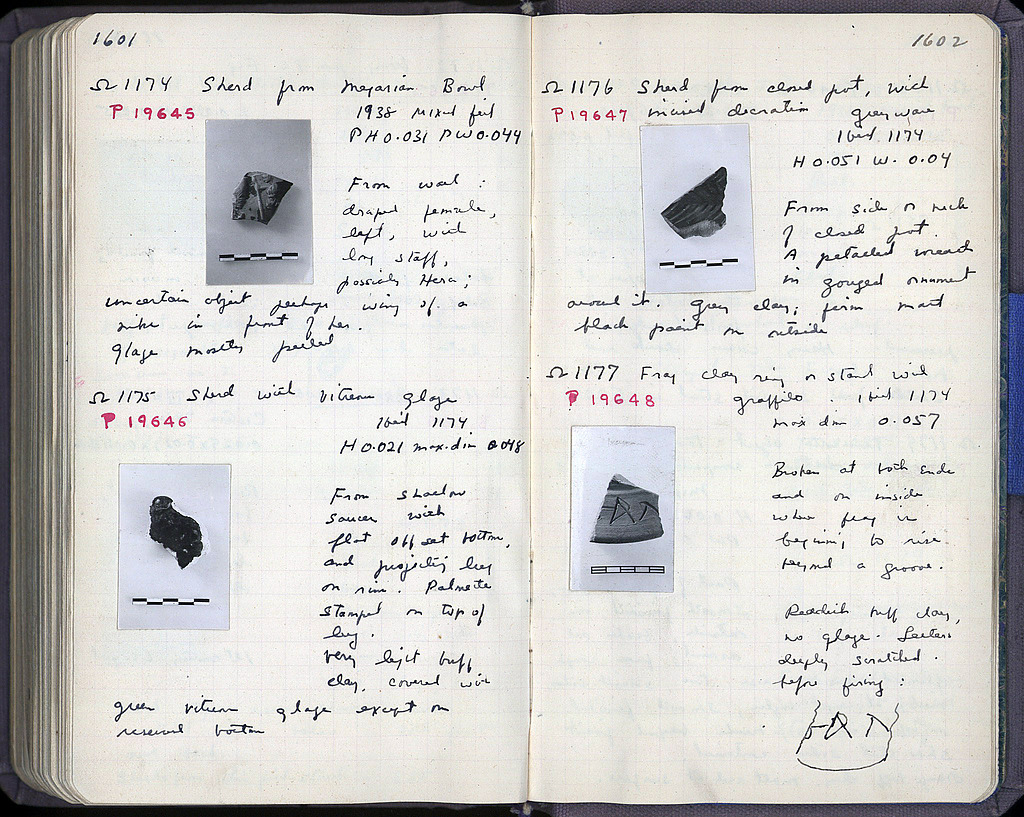 1601
Ω 1174 Sherd from Megarian Bowl
P 19645 1938 Mixed fill
P H 0.031 P W 0.044
From wall:
draped female,
left, with
long staff,
possibly Hera;
uncertain object perhaps wing of a
nike in front of her.
Glaze mostly peeled
Ω 1175 Sherd with vitreous glaze
P 19646 ibid 1174.
H 0.021 max. dim 0.048
From shallow
saucer with
flat offset bottom,
and projecting lug
on rim. Palmette
stamped on top of
lug.
Very light buff
clay, covered with
green vitreous glaze except on
reserved bottom
1602
Ω 1176 Sherd from closed pot, with
P 19647 incised decoration grey ware
ibid 1174
H 0.051 W. 0.04
From side or neck
of closed pot.
A petalled wreath
in gouged ornament
around it. Grey clay; firm matt
black paint on outside
Ω 1177 Frag clay ring or stand with
P 19648 graffito. ibid 1174
max dim 0.057
Broken at both ends
and on inside
where frag is
beginning to rise
beyond a groove.
Reddish buff clay,
no glaze. Letters
deeply scratched
before firing: